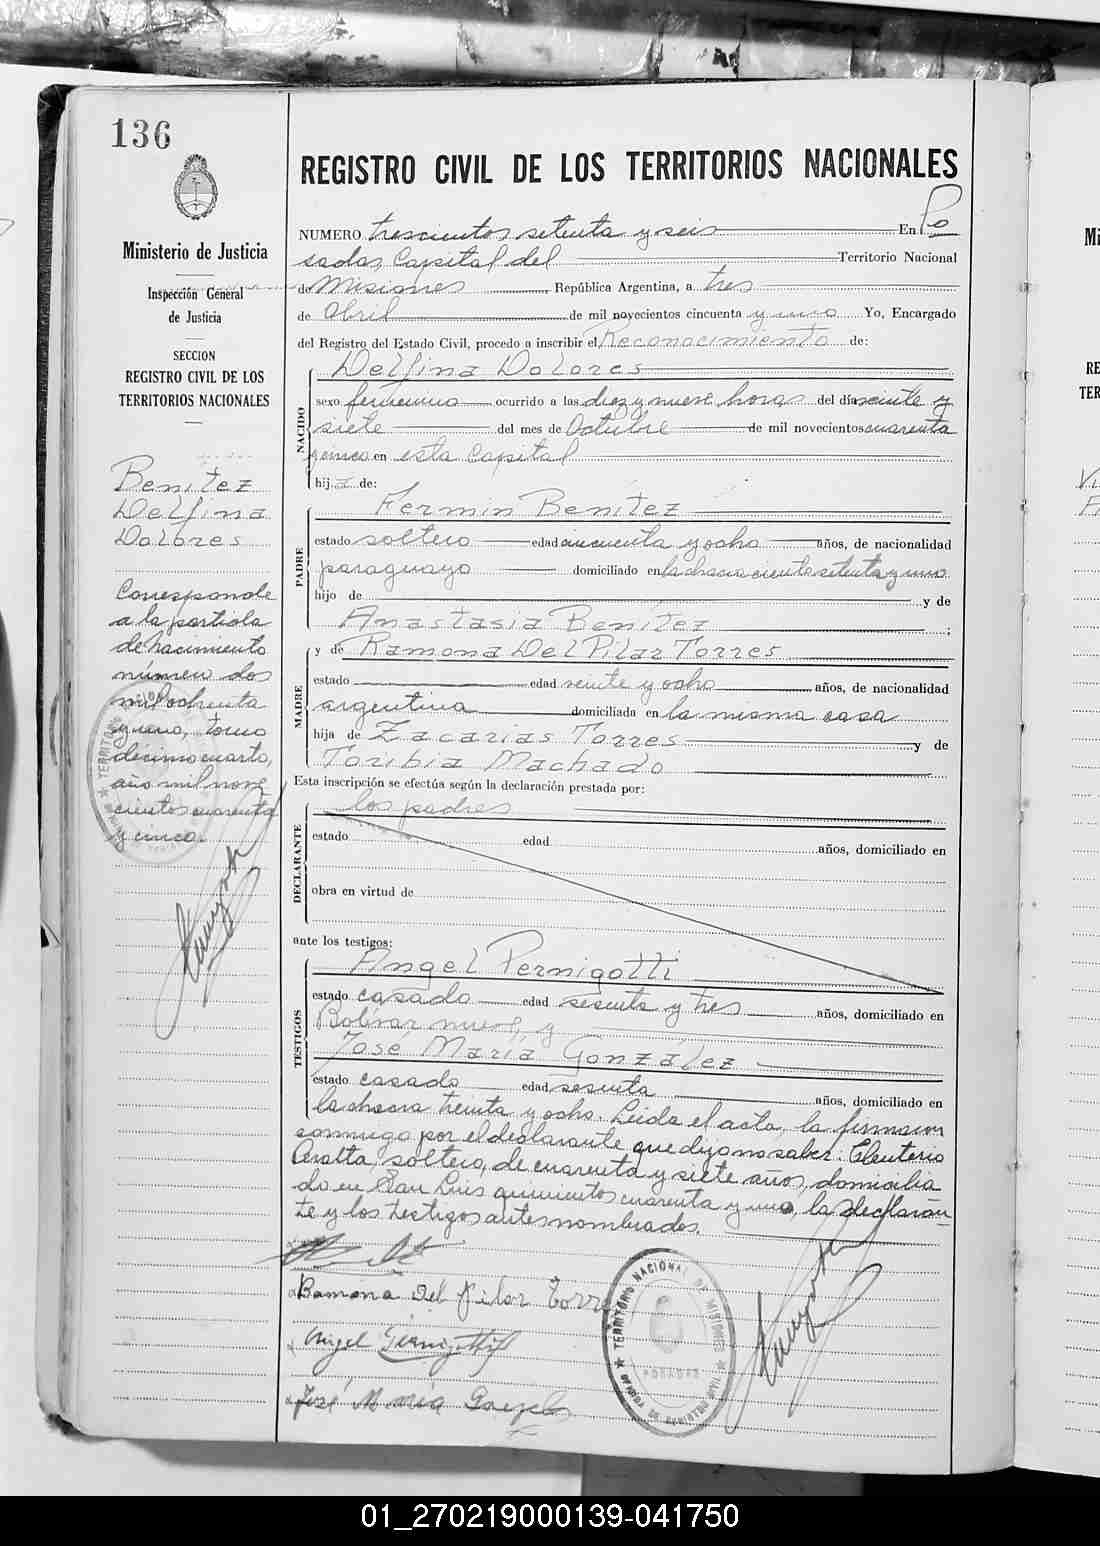 136
Ministerio de Justicia
Inspección General
de Justicia
SECCION
REGISTRO CIVIL DE LOS
TERRITORIOS NACIONALES
Benítez
Delfina
Dolores
Corresponde
a la partida
de nacimiento
número dos
mil ochenta
y uno, tomo
décimo cuarto,
año mil nove
cientos cuarenta
y cinco.
REGISTRO CIVIL DE LOS TERRITORIOS NACIONALES
NUMERO trescientos setenta y seis En Po
sadas, Capital del Territorio Nacional
de Misiones, República Argentina, a tres
de Abril de mil novecientos cincuenta y uno Yo, Encargado
del Registro del Estado Civil, procedo a inscribir el Reconocimiento de:
NACIDO
Delfina Dolores
sexo femenino ocurrido a las diez y nueve horas del día veinte y
siete del mes de Octubre de mil novecientos cuarenta
y cinco en esta Capital
hija de:
PADRE
Fermin Benítez
estado soltero edad cincuenta y ocho años, de nacionalidad
paraguayo domiciliado en la chacra ciento setenta y uno
hijo de y de
Anastasia Benítez ;
MADRE
y de Ramona Del Pilar Torres
estado edad veinte y ocho años, de nacionalidad
argentina domiciliada en la misma casa
hija de Zacarías Torres y de
Toribia Machado
Esta inscripción se efectúa según la declaración prestada por:
DECLARANTE
los padres
estado edad años, domiciliado en
obra en virtud de
ante los testigos:
TESTIGOS
Angel Pernigotti
estado casado edad sesenta y tres años, domiciliado en
Bolívar nueve, y
José María González
estado casado edad sesenta años, domiciliado en
la chacra treinta y ocho. Leída el acta, la firmaron
conmigo por el declarante que dijo no saber: Eleuterio
Peralta, soltero, de cuarenta y siete años, domicilia
do en San Luis quinientos cuarenta y uno, la declaran
te y los testigos antes nombrados.
Ramona Del Pilar Torres
Angel Pernigotti
José María González
TERRITORIO NACIONAL DE MISIONES
POSADAS
OFICINA DE REGISTRO CIVIL
01_270219000139-041750